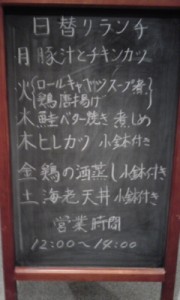 日替りランチ
月豚汁とチキンカツ
火ロールキャベツスープ煮
鶏唐揚げ
水鮭バター焼き 煮しめ
木ヒレカツ 小鉢付き
金鶏の酒蒸し小鉢付き
土海老天丼小鉢付き
営業時間
12:00〜14:00